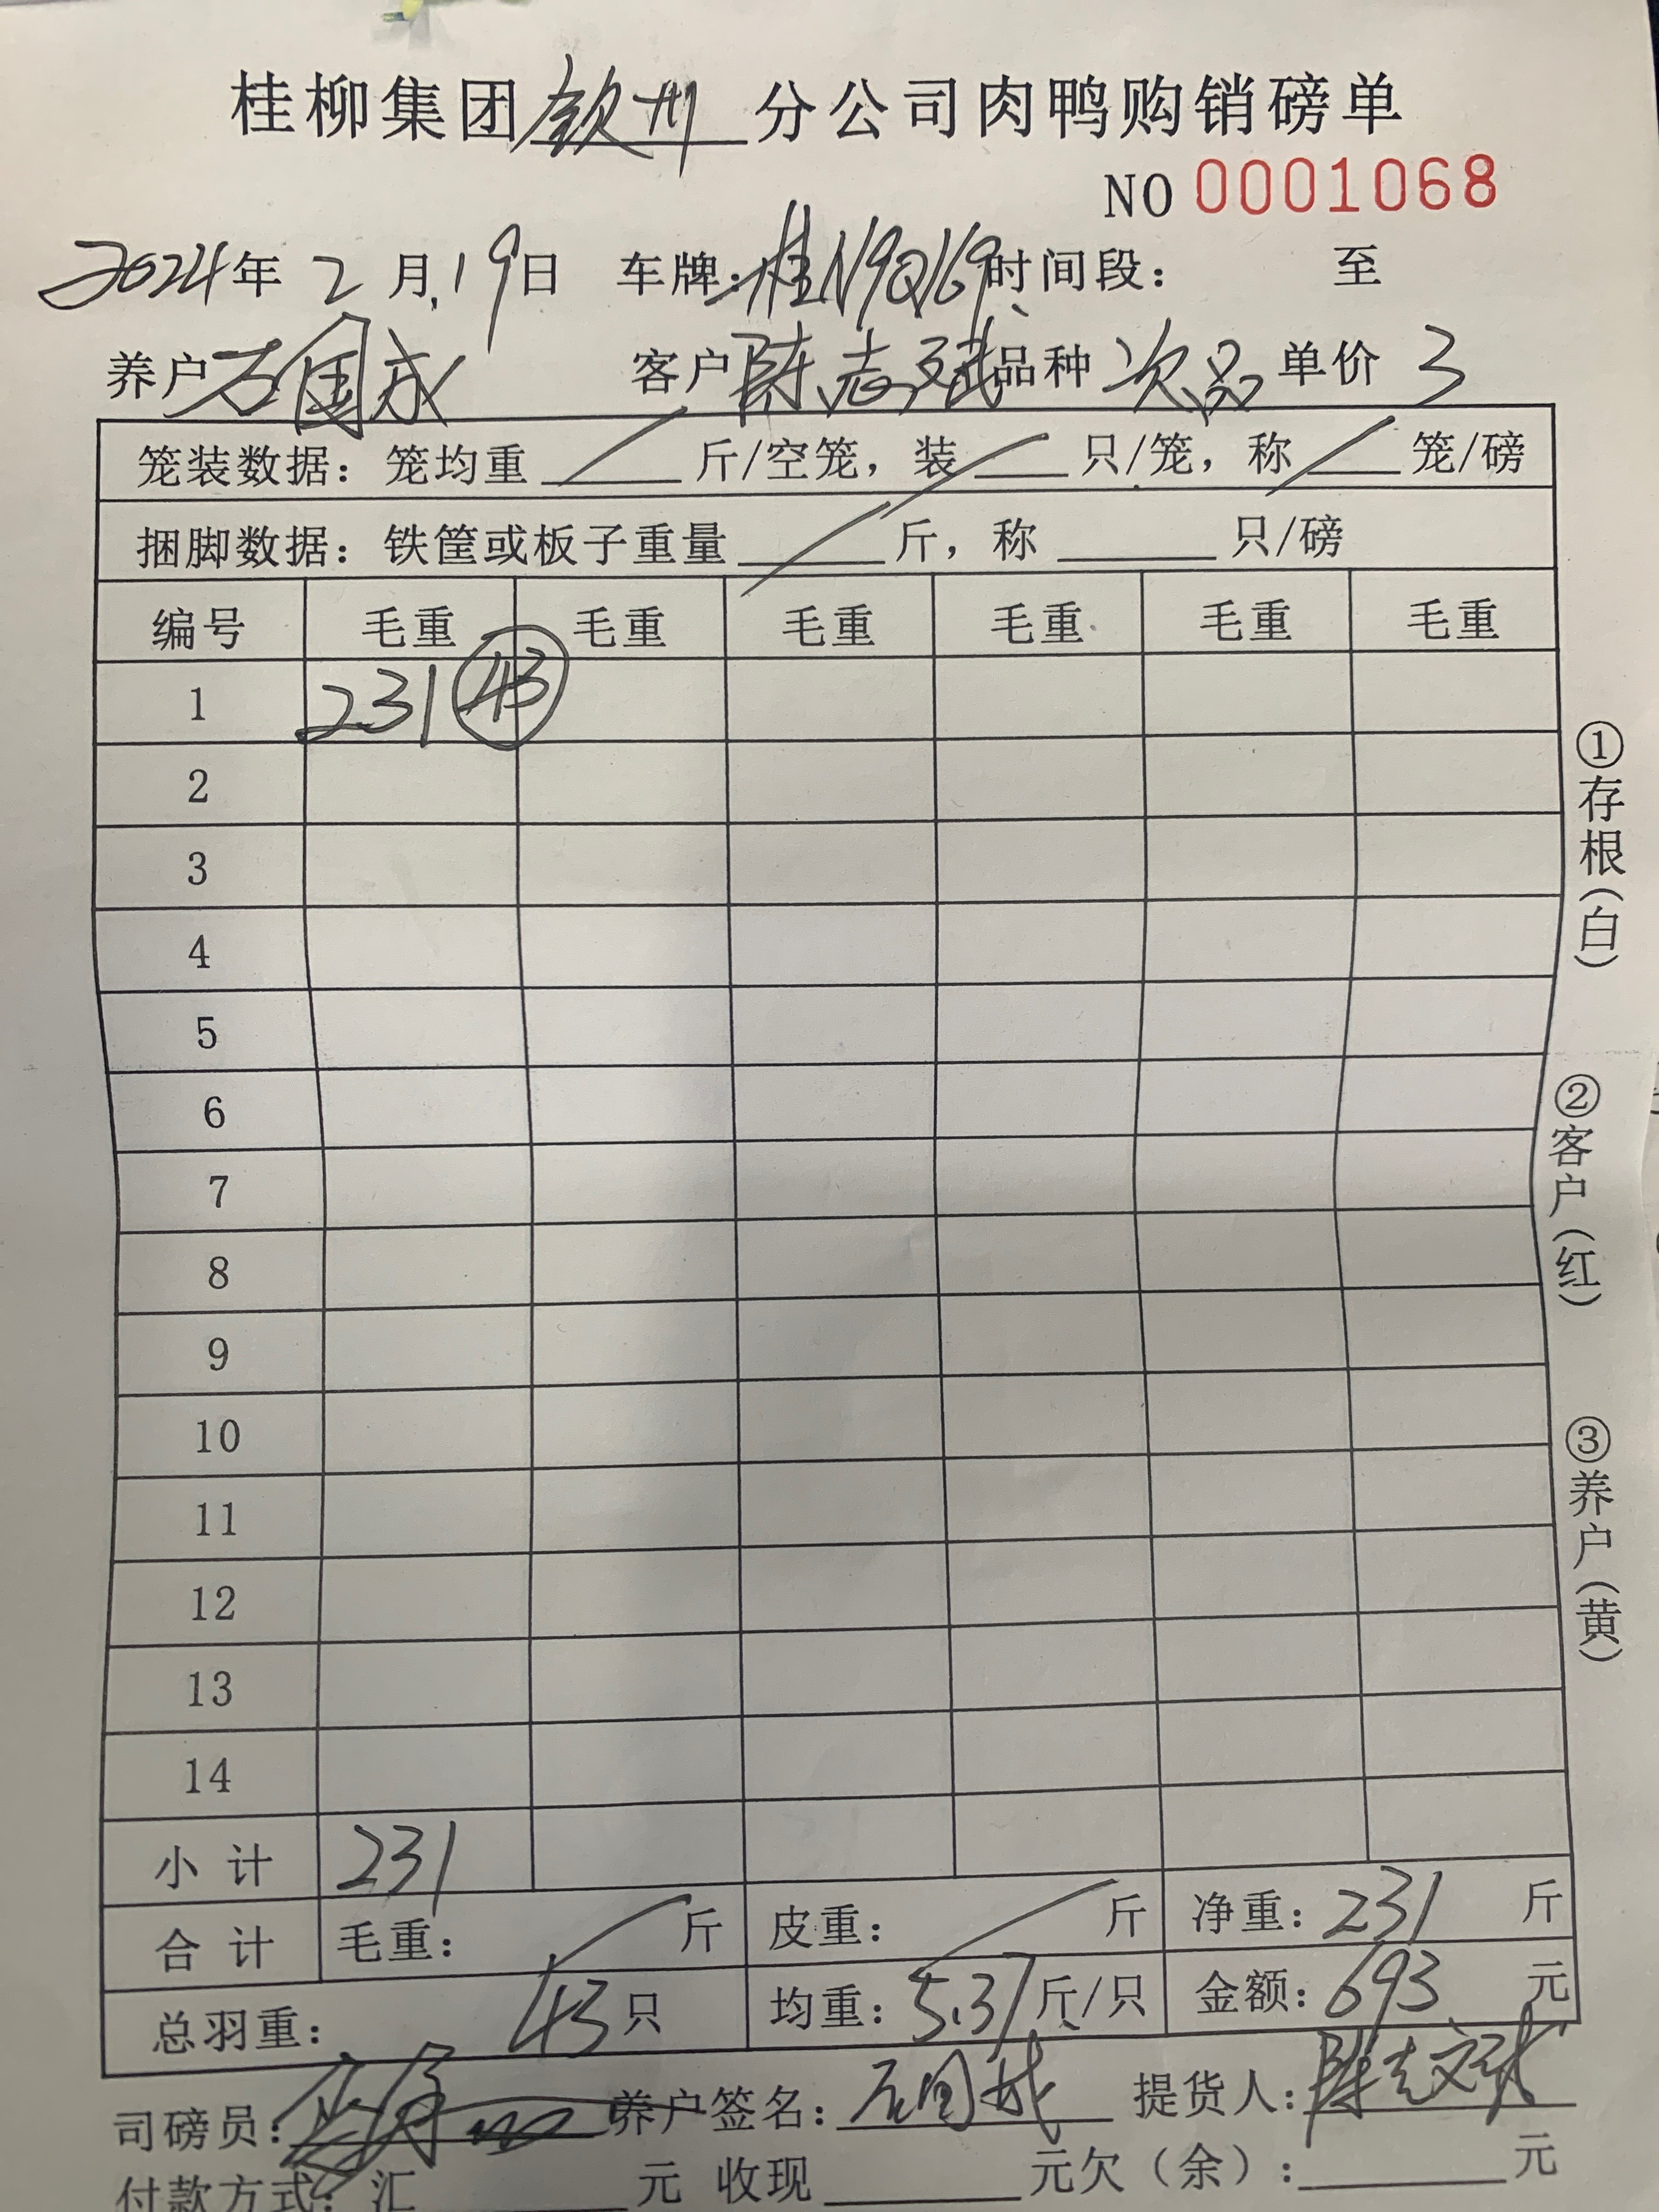 桂柳集团钦州分公司肉鸭购销磅单
NO 0001068
2024年2月19日 车牌:桂N9Q169 时间段: 至
养户万国成 客户陈志斌 品种次品 单价3
笼装数据: 笼均重 斤/空笼, 装 只/笼, 称 笼/磅
捆脚数据: 铁筐或板子重量 斤, 称 只/磅
编号 毛重 毛重 毛重 毛重 毛重 毛重
1 231 43
2
3
4
5
6
7
8
9
10
11
12
13
14
小计 231
合计 毛重: 斤 皮重: 斤 净重: 231 斤
总羽重: 43只 均重: 5.37斤/只 金额: 693 元
司磅员: 养户签名: 提货人: 陈志斌
付款方式: 汇 元 收现 元欠(余): 元
①存根(白)
②客户(红)
③养户(黄)